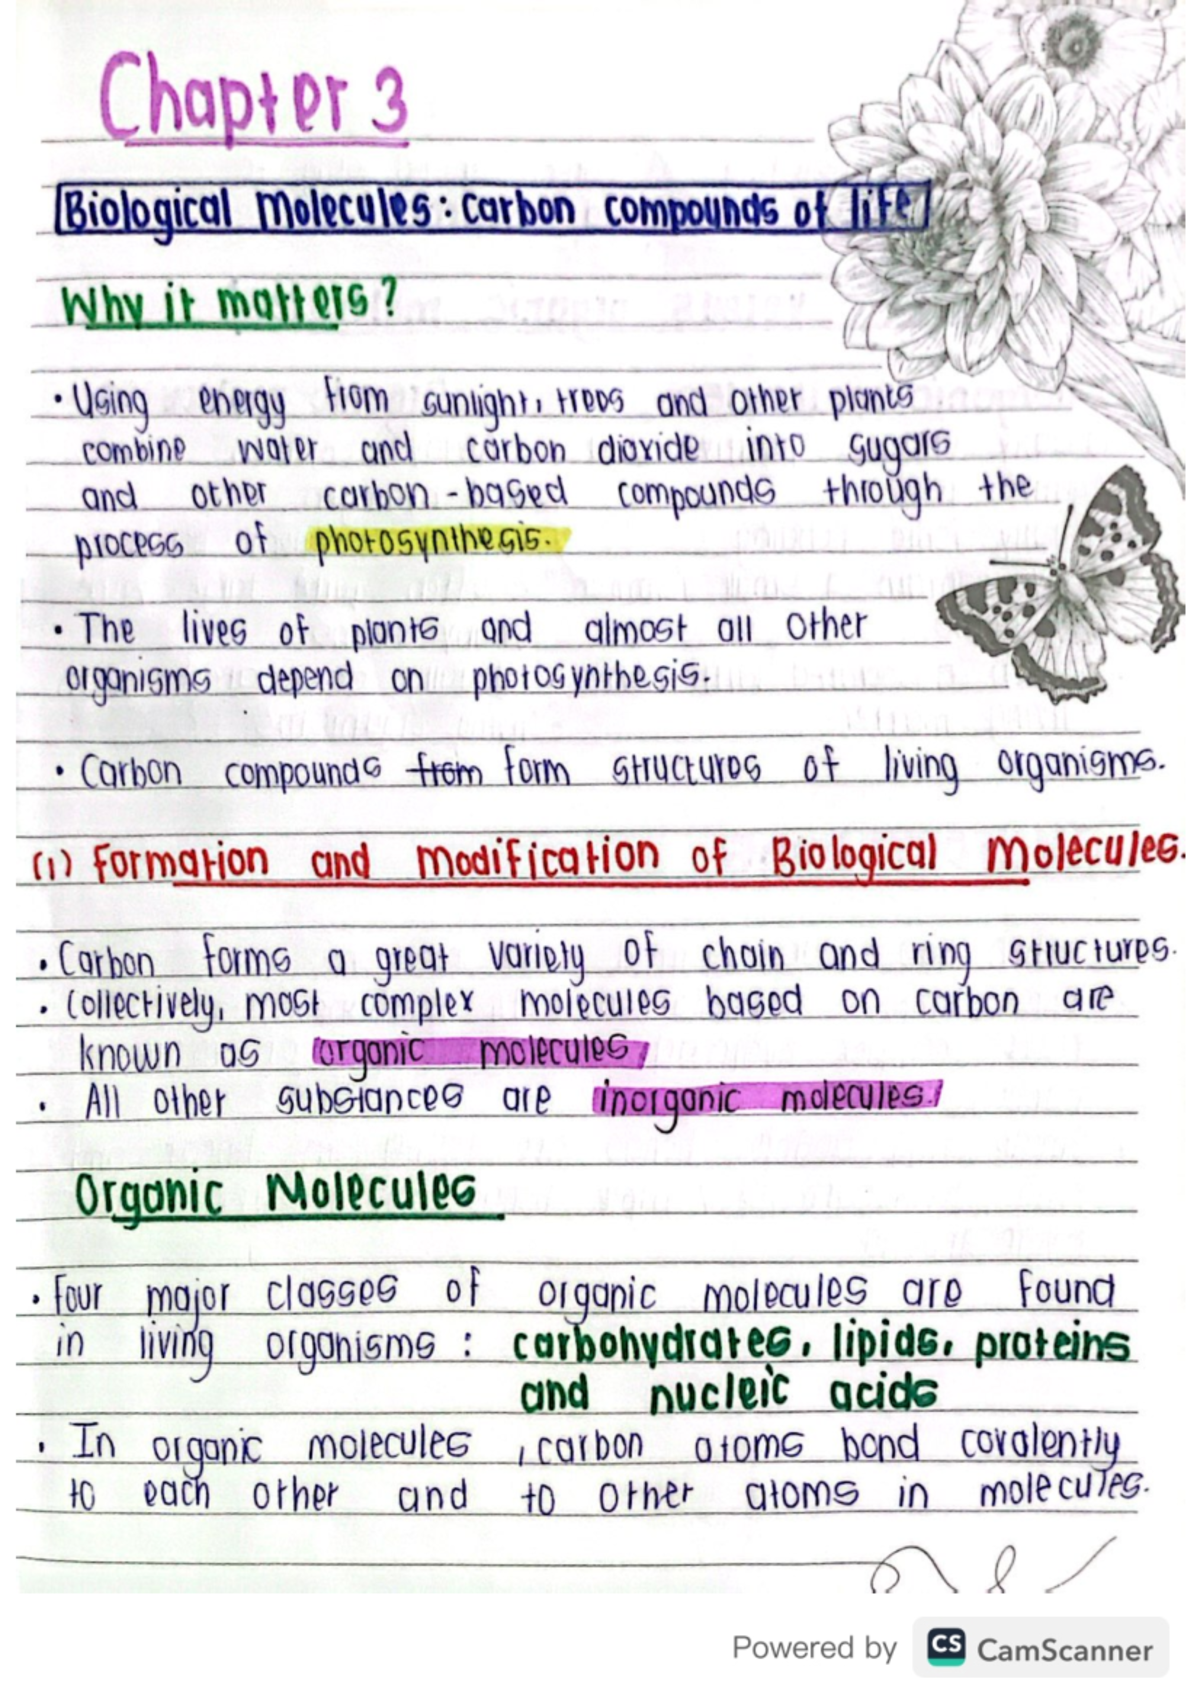 Chapter 3
Biological Molecules: Carbon compounds of life
Why it matters?
• Using energy from sunlight, trees and other plants
combine water and carbon dioxide into sugars
and other carbon-based compounds through the
process of photosynthesis.
• The lives of plants and almost all other
organisms depend on photosynthesis.
• Carbon compounds from form structures of living organisms.
(1) Formation and Modification of Biological Molecules.
• Carbon forms a great variety of chain and ring structures.
• Collectively, most complex molecules based on carbon are
known as organic molecules
• All other substances are inorganic molecules.
Organic Molecules
• Four major classes of organic molecules are found
in living organisms : carbohydrates, lipids, proteins
and nucleic acids
• In organic molecules, carbon atoms bond covalently
to each other and to other atoms in molecules.
Powered by CS CamScanner